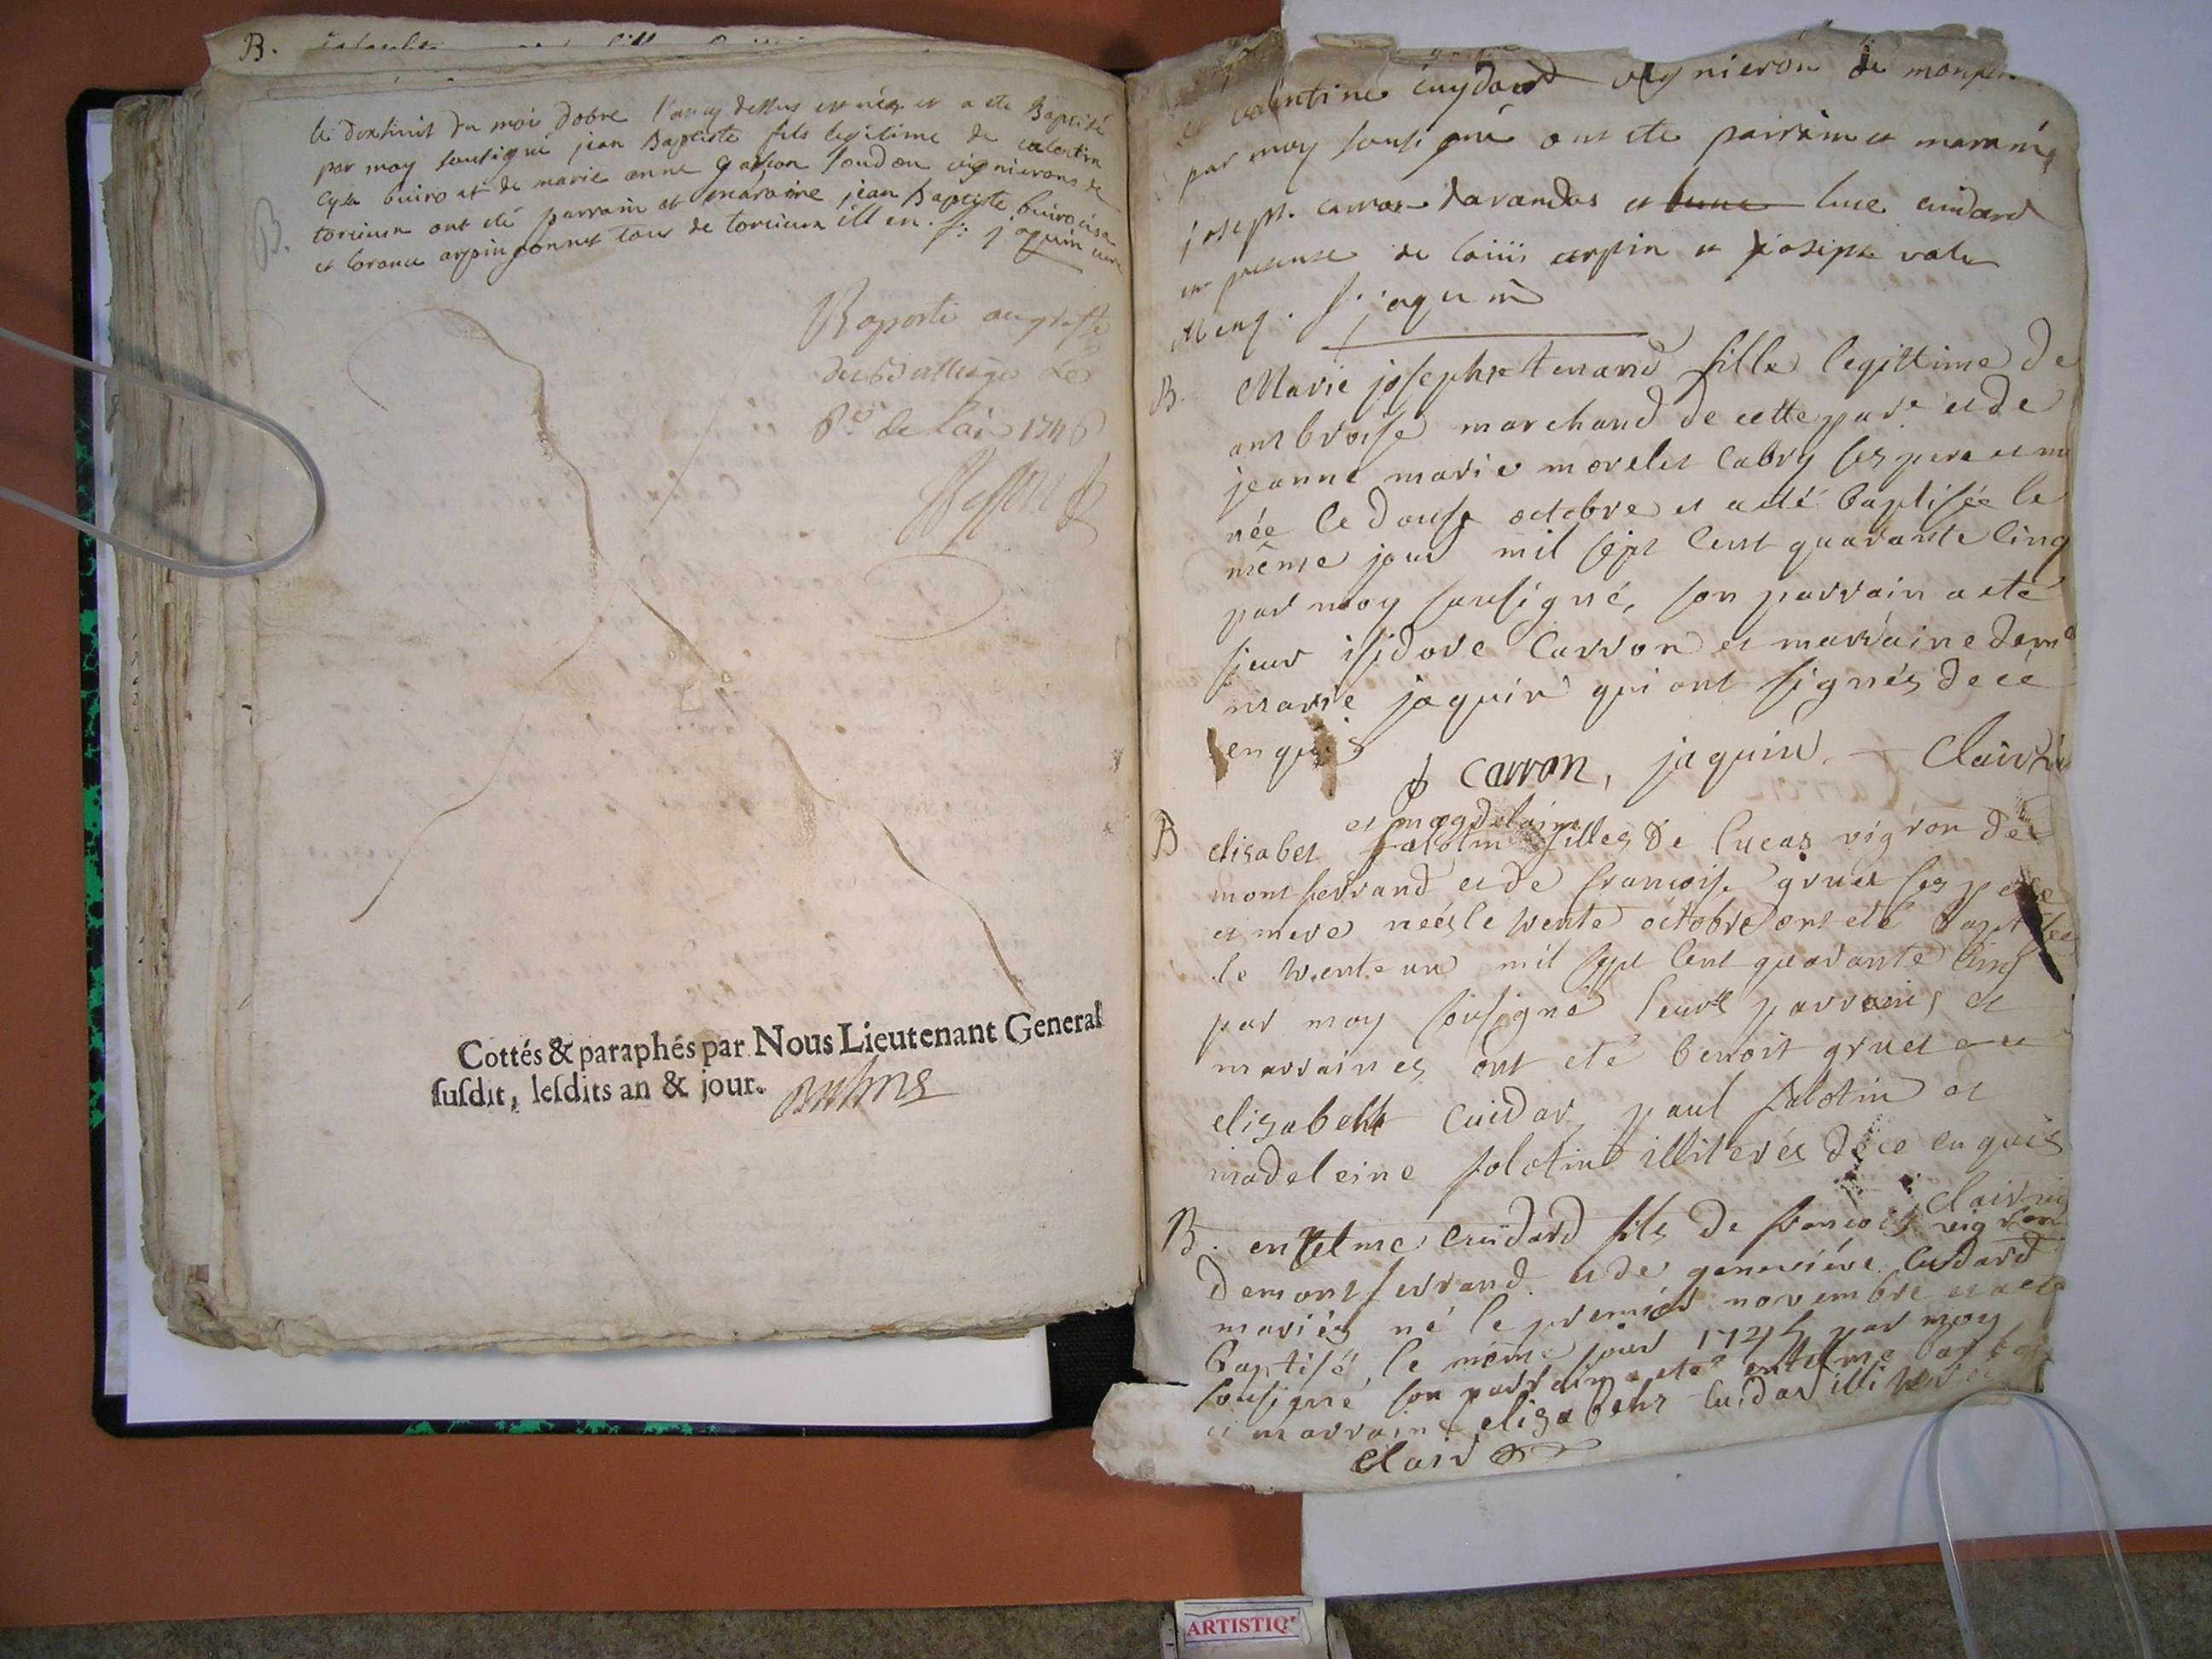 B.
le dixhuit du mois dobre l'an cy dessus est né et a ete Baptisé
par moy sousigné jean Baptiste fils legitime de valentin
buiro et de marie anne vignierons de
torcieux ont été parrain et maraine jean Baptiste buiro
B.
et lorance arpin tous de torcieux illen. S: jaquin curé
Raporté au greffe
du Balliage Le
de 1746
Cottés & paraphés par Nous Lieutenant General
susdit, lesdits an & jour.
valentine cuydard vignieron de
par moy sousigné ont ete parrain et maraine
joseph carron davandas et luce cuidard
en presence de louis arpin et joseph
illeng. S: jaquin
B. Marie josephte tenand fille legittime de
ambroise marchand de cette par.e et de
jeanne marie morelet Cabry ses pere et me
née le douse octobre et a eté baptisée le
même jour mil sept cent quarante cinq
par moy sousigné, son parrain a eté
sieur isidore Carron et marraine dem.e
marie jaquin qui ont signés de ce
enquis
carron, jaquin. Clair
et magdelaine
B elisabet falotin filles de lucas vigron de
montferrand et de francoise gruet ses pere
et mere neés le trente octobre ont eté baptisées
le trente un mil sept cent quarante cinq
par moy sousigné leurs parrains et
marraines ont eté benoit gruet et
elisabeth Cuidar, paul falotin et
madeleine folotin illiterés de ce enquis
clair
B. entelme cuidard fils de francois vigron
de montferrand et de genevieve cuidard
mariés né le premier novembre et a eté
baptisé le même jour 1745 par moy
sousigné son parrain a eté entelme
et marraine elisabeht Cuidar illiterés
clair
ARTISTIQ'